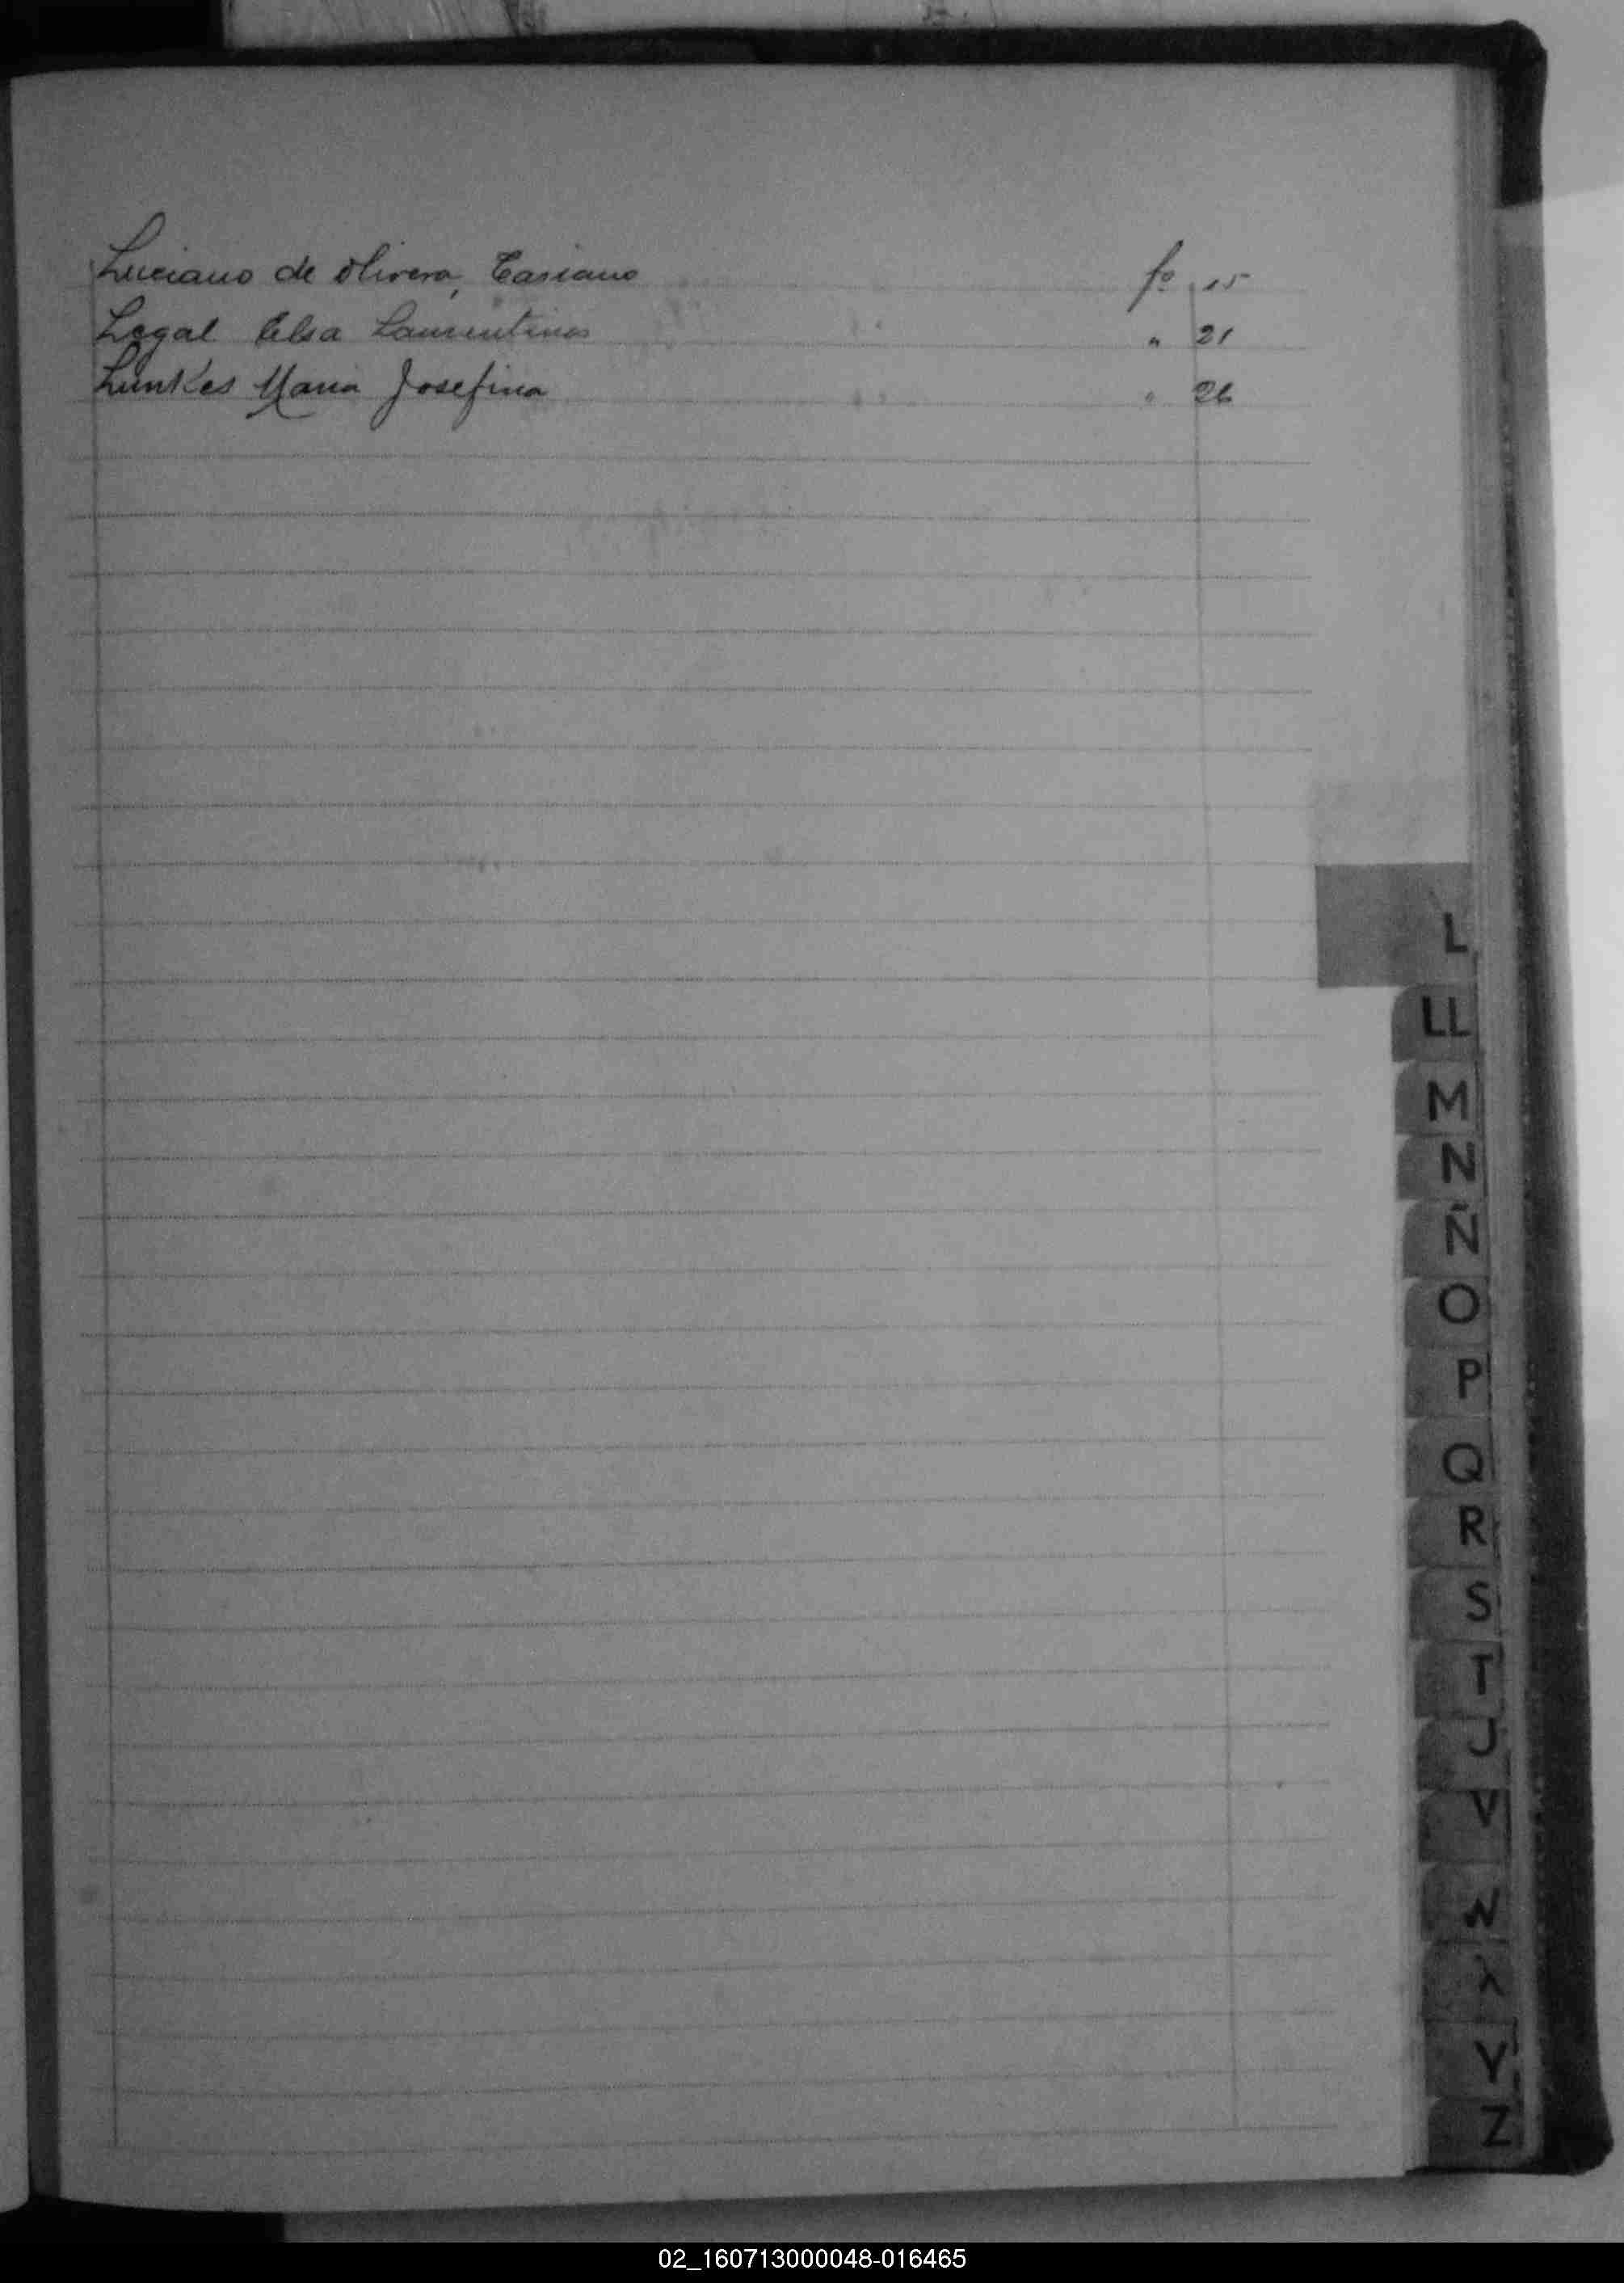 Luciano de Olivera, Casiano fº 15
Legal Elsa Laurentinos " 21
Lunkes Maria Josefina " 26
L
LL
M
N
Ñ
O
P
Q
R
S
T
U
V
W
X
Y
Z
02_160713000048-016465